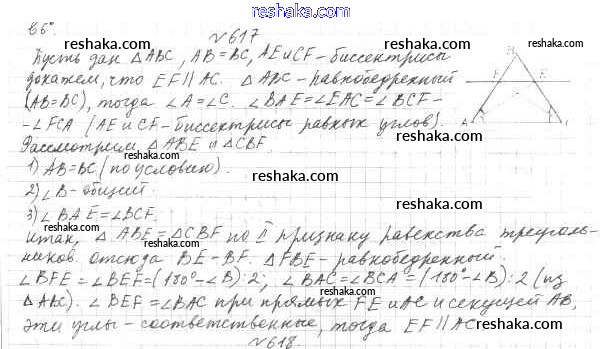 www.reshak.ru
66°.
№617
reshaka.com reshaka.com reshaka.com
Пусть дан △ABC, AB=BC, AE и CF - биссектрисы
докажем, что EF∥AC. △ABC - равнобедренный
(AB=BC), тогда ∠A=∠C. ∠BAE=∠EAC=∠BCF-
-∠FCA (AE и CF - биссектрисы равных углов).
Рассмотрим △ABE и △CBF.
1) AB=BC (по условию).
2) ∠B - общий
3) ∠BAE=∠BCF.
Итак, △ABE=△CBF по II признаку равенства треуголь-
ников. отсюда BE-BF. △FBE - равнобедренный
∠BFE=∠BEF=(180°-∠B):2; ∠BAC=∠BCA=(180°-∠B):2 (из
△ABC). ∠BEF=∠BAC при прямых FE и AC и секущей AB,
эти углы - соответственные, тогда EF∥AC
№618.
B
F E
A C